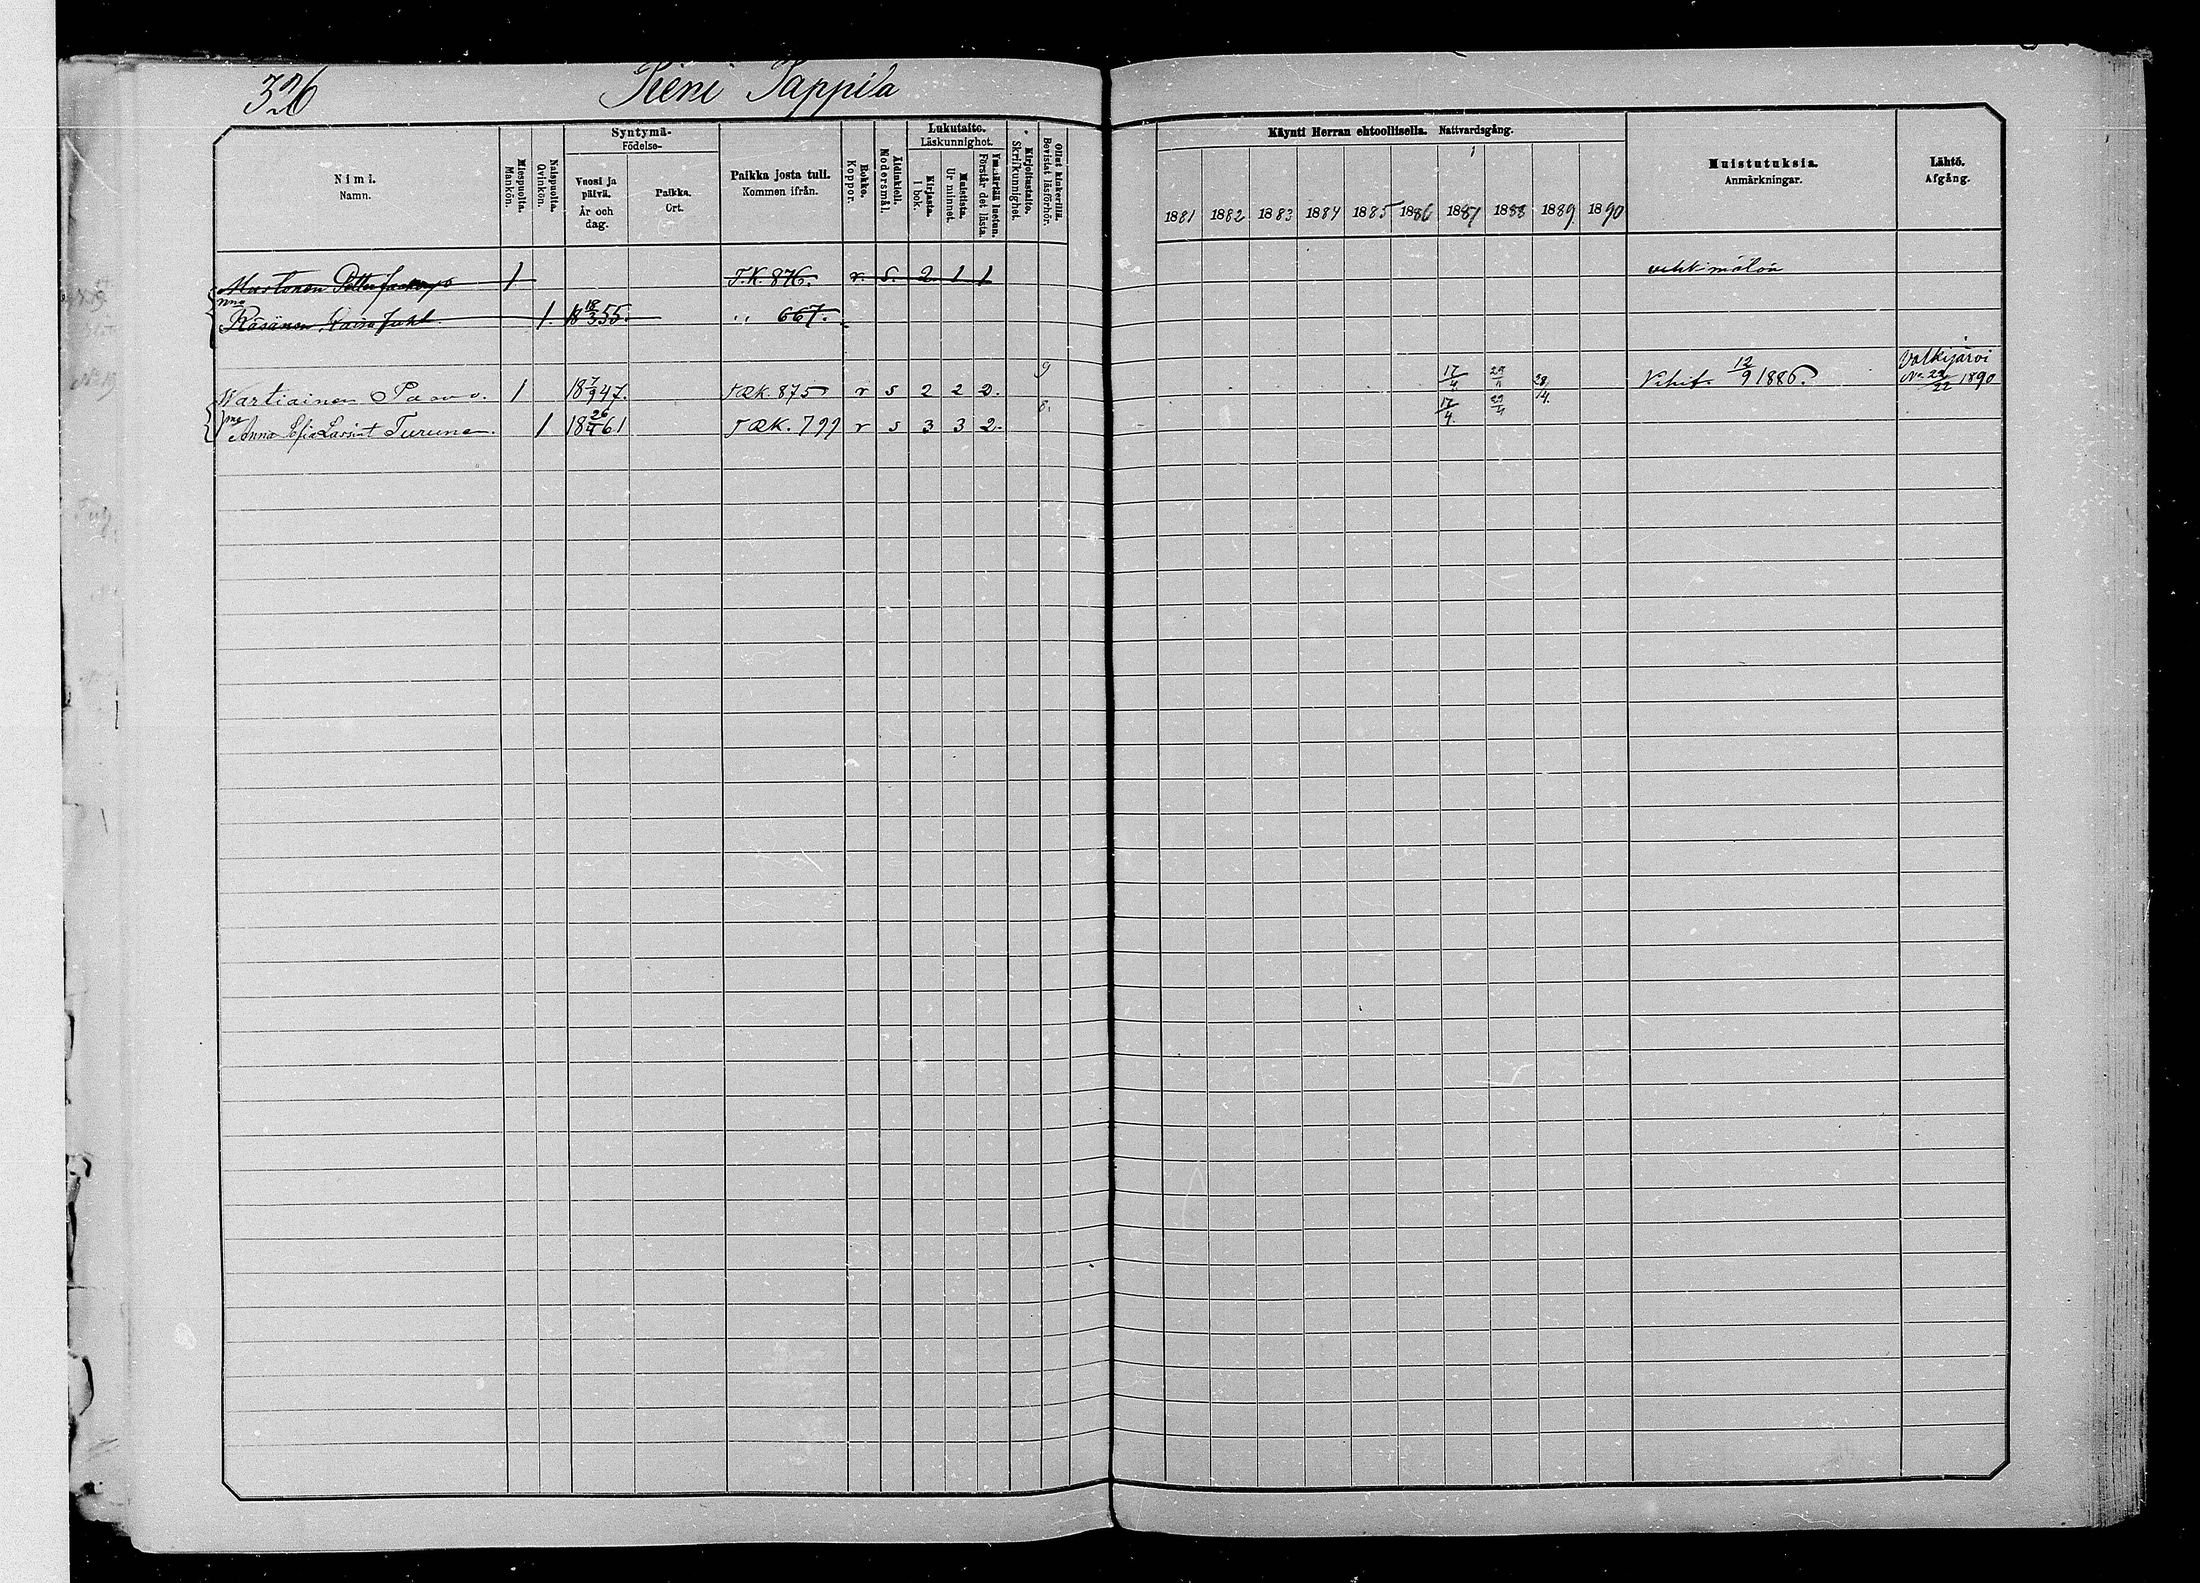 326 Pieni Pappila
Syntymä- Lukutaito. Käynti Herran ehtoollisella. Nattvardsgång.
Födelse- Läskunnighet.
Nimi. Namn. Miespuolta. Mankön. Naispuolta. Qvinkön. Vuosi ja päivä. År och dag. Paikka. Ort. Paikka josta tuli. Kommen ifrån. Rokko. Koppor. Äidinkieli. Modersmål. Kirjasta. I bok. Muistista. Ur minnet. Ymmärtää luetun. Förstår det lästa. Kirjoitustaito. Skrifkunnighet. Ollut kinkerillä. Bevistat läsförhör. 1881 1882 1883 1884 1885 1886 1887 1888 1889 1890 Muistutuksia. Anmärkningar. Lähtö. Afgång.
Mustonen Petter 1 T.K. 876. r. s. 2 1 1
Räsänen Kaisa Juht. 1. 18 18/3 55. " 667.
Wartiainen Paavo. 1 18 7/9 47. TÆK. 875 r s 2 2 2. 9 17/4 29/4 28/4. Vihit. 12/9 1886. Valkijärvi No 22/22 1890
Anna Sofia Lassint Turunen. 1 18 26/4 61 TÆK. 799 r s 3 3 2. 8. 17/4. 29/4